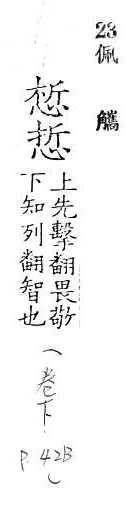 23 佩觿
惁悊
上先擊翻畏敬
下知列翻智也
(卷下 P.42B)